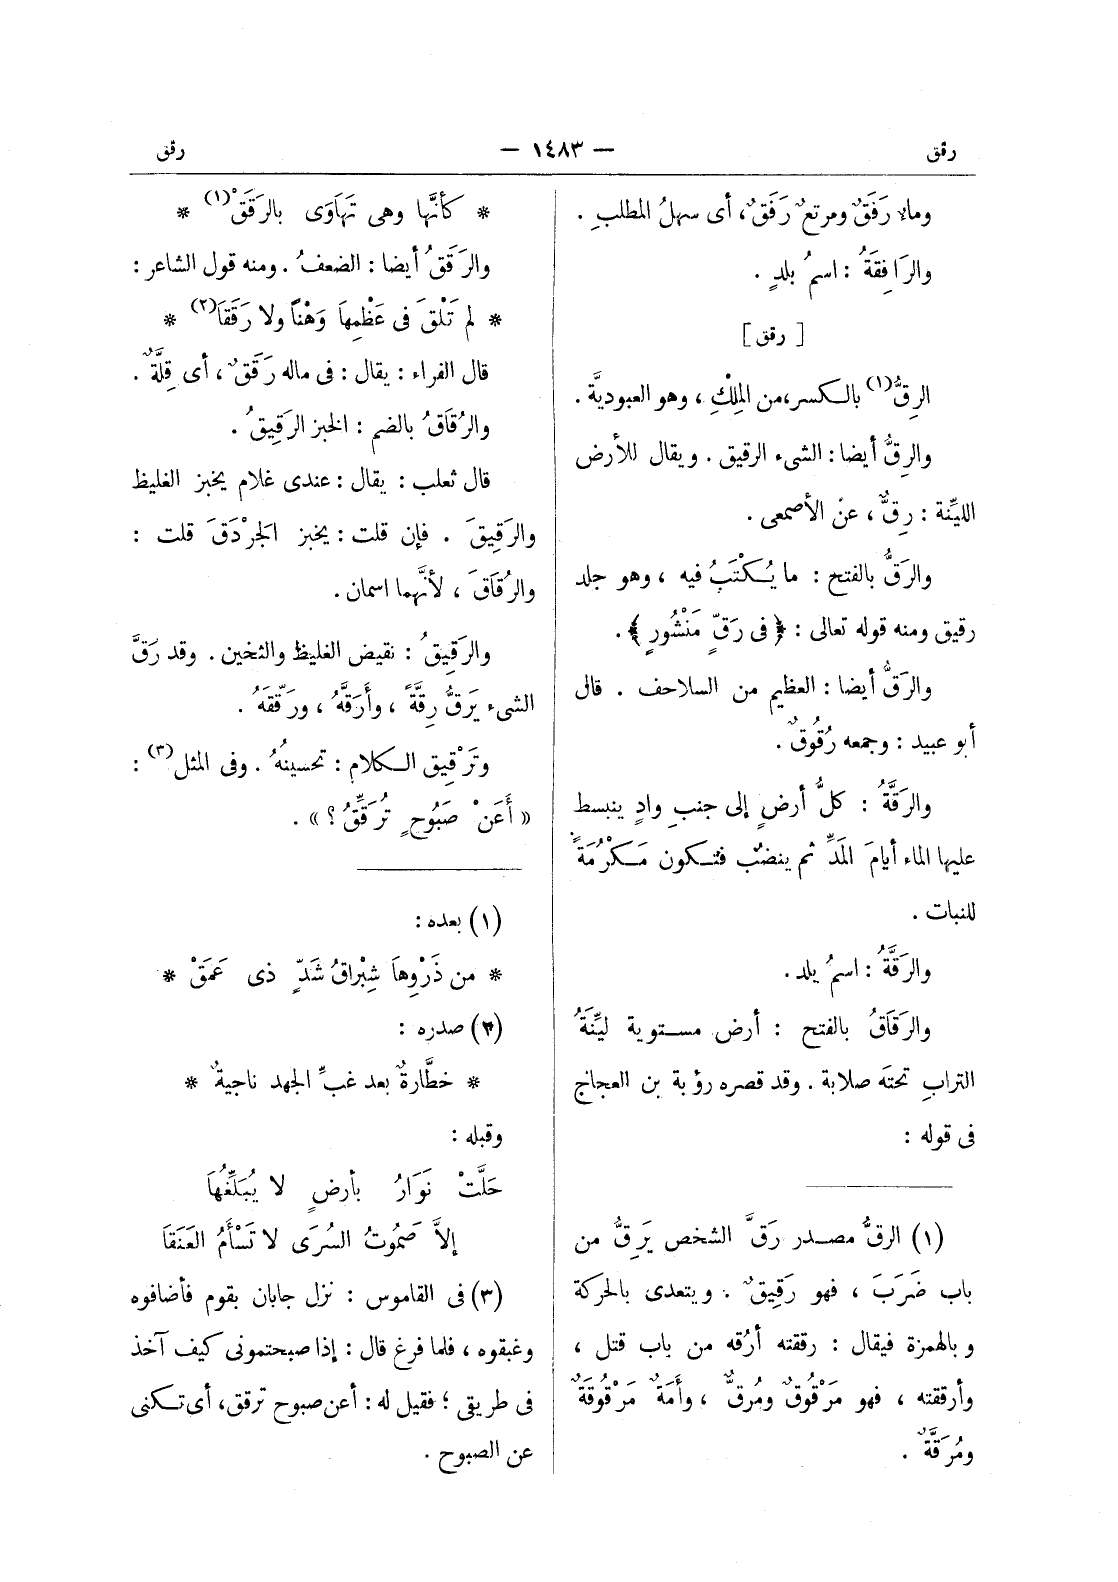 رقق — ١٤٨٣ — رقق
وماء رَفَقٌ ومرتع رَفَقٌ، أى سهلُ المطلبِ .
والرَافِقَةُ : اسمُ بلدٍ .
[ رقق ]
الرِقُّ(١) بالكسر، من المِلْكِ ، وهو العبوديَّة .
والرِقُّ أيضا : الشىء الرقيق . ويقال للأرض
الليِّنة : رِقٌّ ، عنْ الأصمعى .
والرَقُّ بالفتح : ما يُكْتَبُ فيه ، وهو جلد
رقيق ومنه قوله تعالى : ﴿ فى رَقٍّ مَنْشُورٍ ﴾ .
والرَقُّ أيضا : العظيم من السلاحف . قال
أبو عبيد : وجمعه رُقُوقٌ .
والرَقَّةُ : كلُّ أرضٍ إلى جنبِ وادٍ ينبسط
عليها الماء أيامَ المَدِّ ثم ينضُب فتكون مَكْرُمَةً
للنبات .
والرَقَّةُ : اسمُ بلد .
والرَقَاقُ بالفتح : أرض مستوية ليِّنَةُ
الترابِ تحتَه صلابة . وقد قصره رؤبة بن العجاج
فى قوله :
(١) الرقُّ مصدر رَقَّ الشخص يَرِقُّ من
باب ضَرَبَ ، فهو رَقِيقٌ . ويتعدى بالحركة
وبالهمزة فيقال : رققته أرُقه من باب قتل ،
وأرققته ، فهو مَرْقُوقٌ ومُرقٌّ ، وأَمَةٌ مَرْقُوقَةٌ
ومُرَقَّةٌ .
* كأنَّها وهى تَهَاوَى بالرَقَقْ(١) *
والرَقَقُ أيضا : الضعفُ . ومنه قول الشاعر :
* لم تَلْقَ فى عَظْمِهاَ وَهْنًا ولا رَقَقَا(٢) *
قال الفراء : يقال : فى ماله رَقَقٌ ، أى قِلَّةٌ .
والرُقَاقُ بالضم : الخبز الرَقِيقُ .
قال ثعلب : يقال : عندى غلام يخبز الغليظ
والرَقِيقَ . فإن قلت : يخبز الجَرْدَقَ قلت :
والرُقَاقَ ، لأنَّهما اسمان .
والرَقِيقُ : نقيض الغليظ والثخين . وقد رَقَّ
الشىء يَرِقُّ رِقَّةً ، وأَرَقَّهُ ، ورَقَّقَهُ .
وتَرْقِيق الكلام : تحسينُهُ . وفى المثل(٣) :
« أَعَنْ صَبُوحٍ تُرَقِّقُ ؟ » .
(١) بعده :
* من ذَرْوِهاَ شِبْرَاقُ شَدٍّ ذى عَمَقْ *
(٢) صدره :
* خطَّارةٌ بعد غبِّ الجهد ناجيةٌ *
وقبله :
حَلَّتْ نَوَارُ بأرضٍ لا يُبَلِّغُهاَ
إلاَّ صَمُوتُ السُرَى لا تَسْأَمُ العَنَقَا
(٣) فى القاموس : نزل جابان بقوم فأضافوه
وغبقوه ، فلما فرغ قال : إذا صبحتمونى كيف آخذ
فى طريقى ؛ فقيل له : أعن صبوح ترقق، أى تكنى
عن الصبوح .